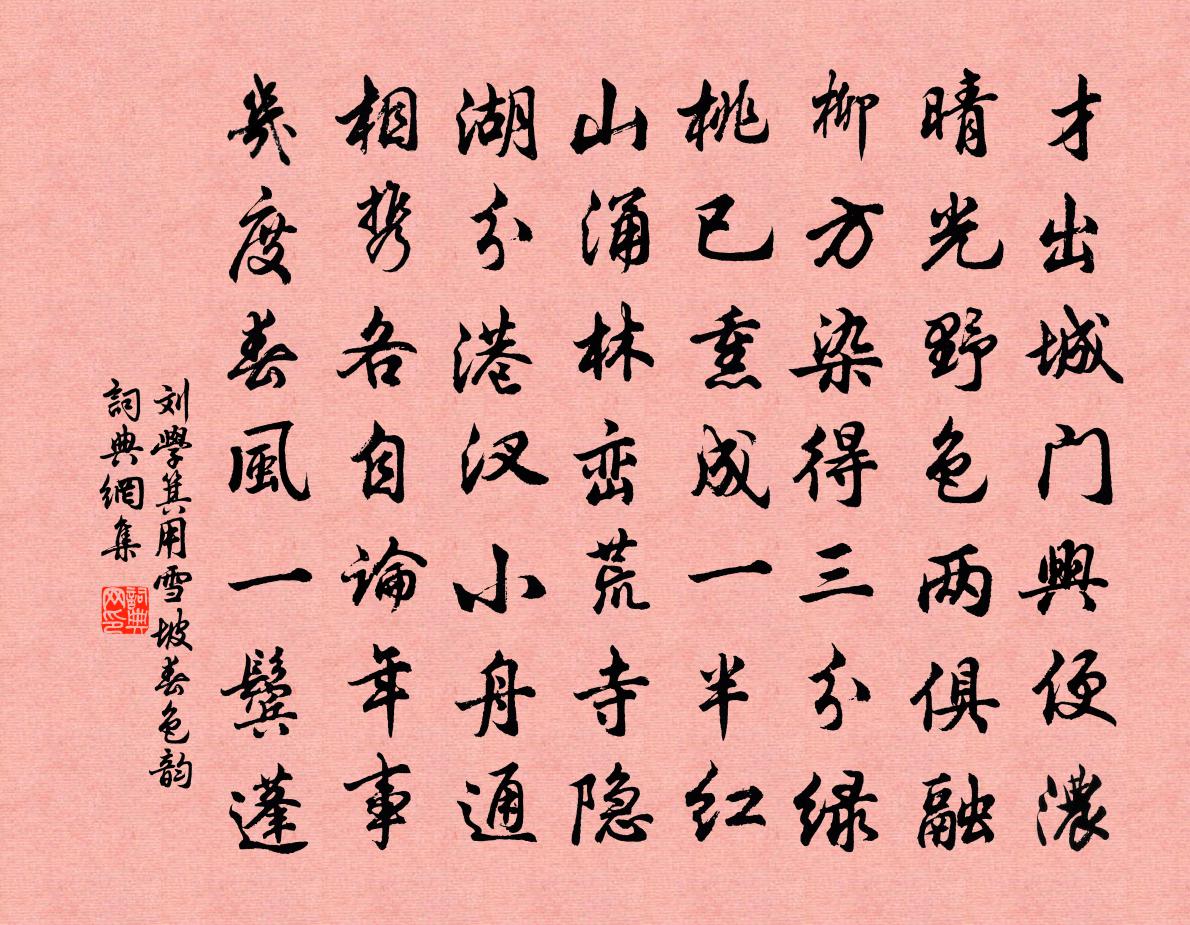 才出城门興便濃
晴光野色两俱融
柳方染得三分绿
桃已熏成一半红
山涌林峦荒寺隐
湖分港汊小舟通
相携各自論年事
幾度春風一鬓蓬
刘學箕用雪坡春色韵
詞典網集
詞典网印